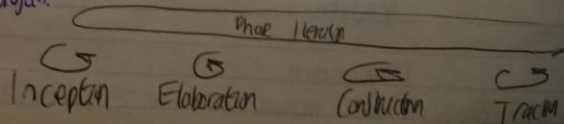 Phase Iteration
Inception Elaboration Construction